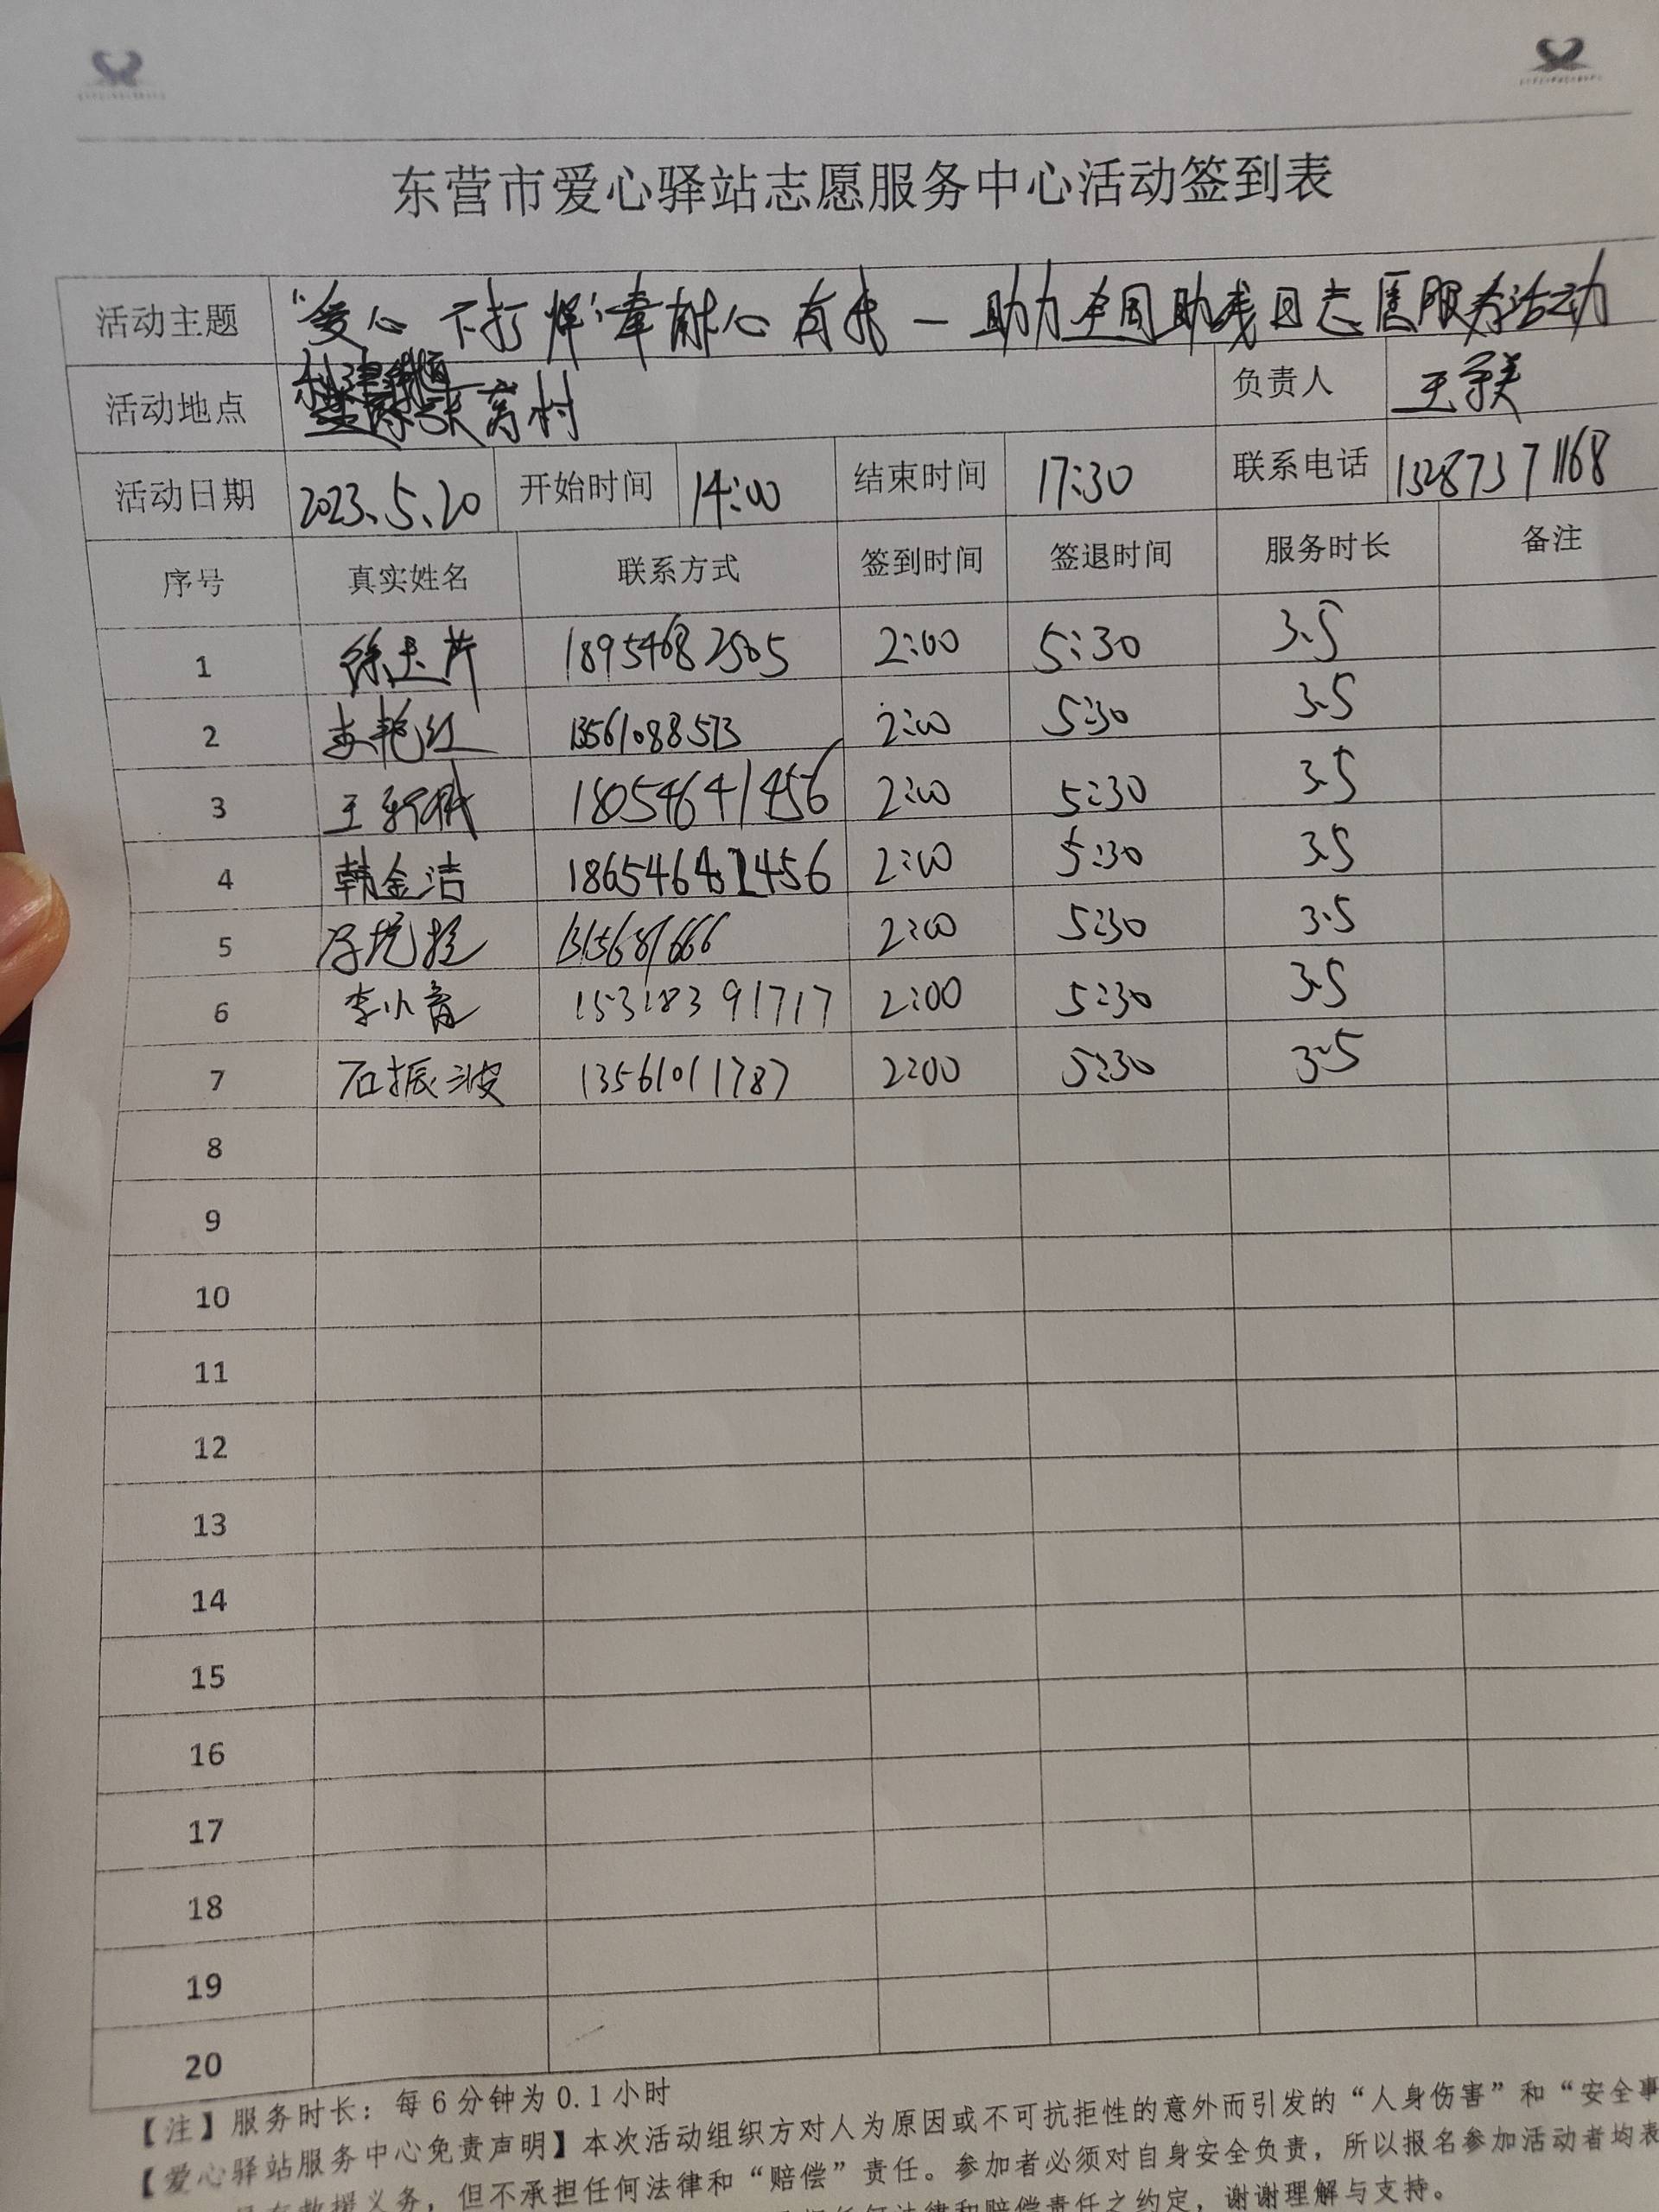 东营市爱心驿站志愿服务中心活动签到表
活动主题 "爱心不打烊"奉献心有我—助力全国助残日志愿服务活动
活动地点 村 负责人 王美
活动日期 2023.5.20 开始时间 14:00 结束时间 17:30 联系电话 13287371168
序号 真实姓名 联系方式 签到时间 签退时间 服务时长 备注
1 徐玉芹 18954682565 2:00 5:30 3.5
2 李艳红 13561088573 2:00 5:30 3.5
3 王 18054641456 2:00 5:30 3.5
4 韩金洁 2:00 5:30 3.5
5 2:00 5:30 3.5
6 李小 2:00 5:30 3.5
7 石振波 13561011787 2:00 5:30 3.5
8
9
10
11
12
13
14
15
16
17
18
19
20
【注】服务时长：每6分钟为0.1小时
【爱心驿站服务中心免责声明】本次活动组织方对人为原因或不可抗拒性的意外而引发的“人身伤害”和“安全事
救援义务，但不承担任何法律和“赔偿”责任。参加者必须对自身安全负责，所以报名参加活动者均表
任何法律和赔偿责任之约定，谢谢理解与支持。